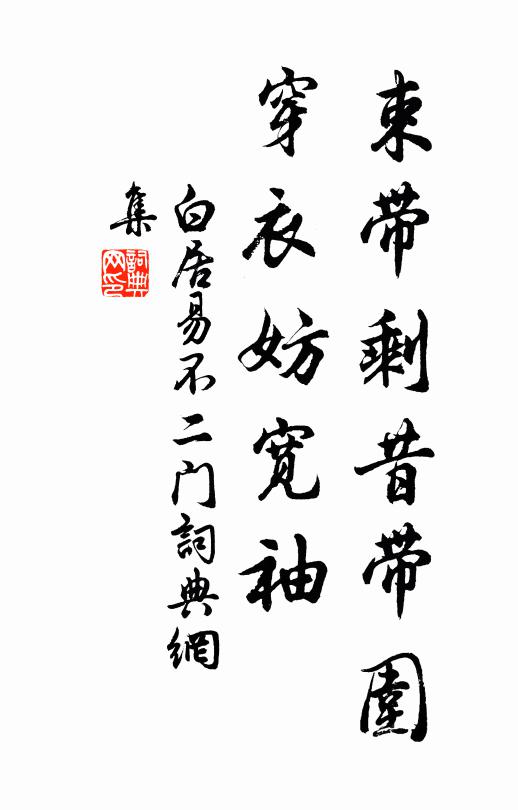 束帶剩昔帶圍
穿衣妨寬袖
白居易不二门詞典網
集
詞典
网印